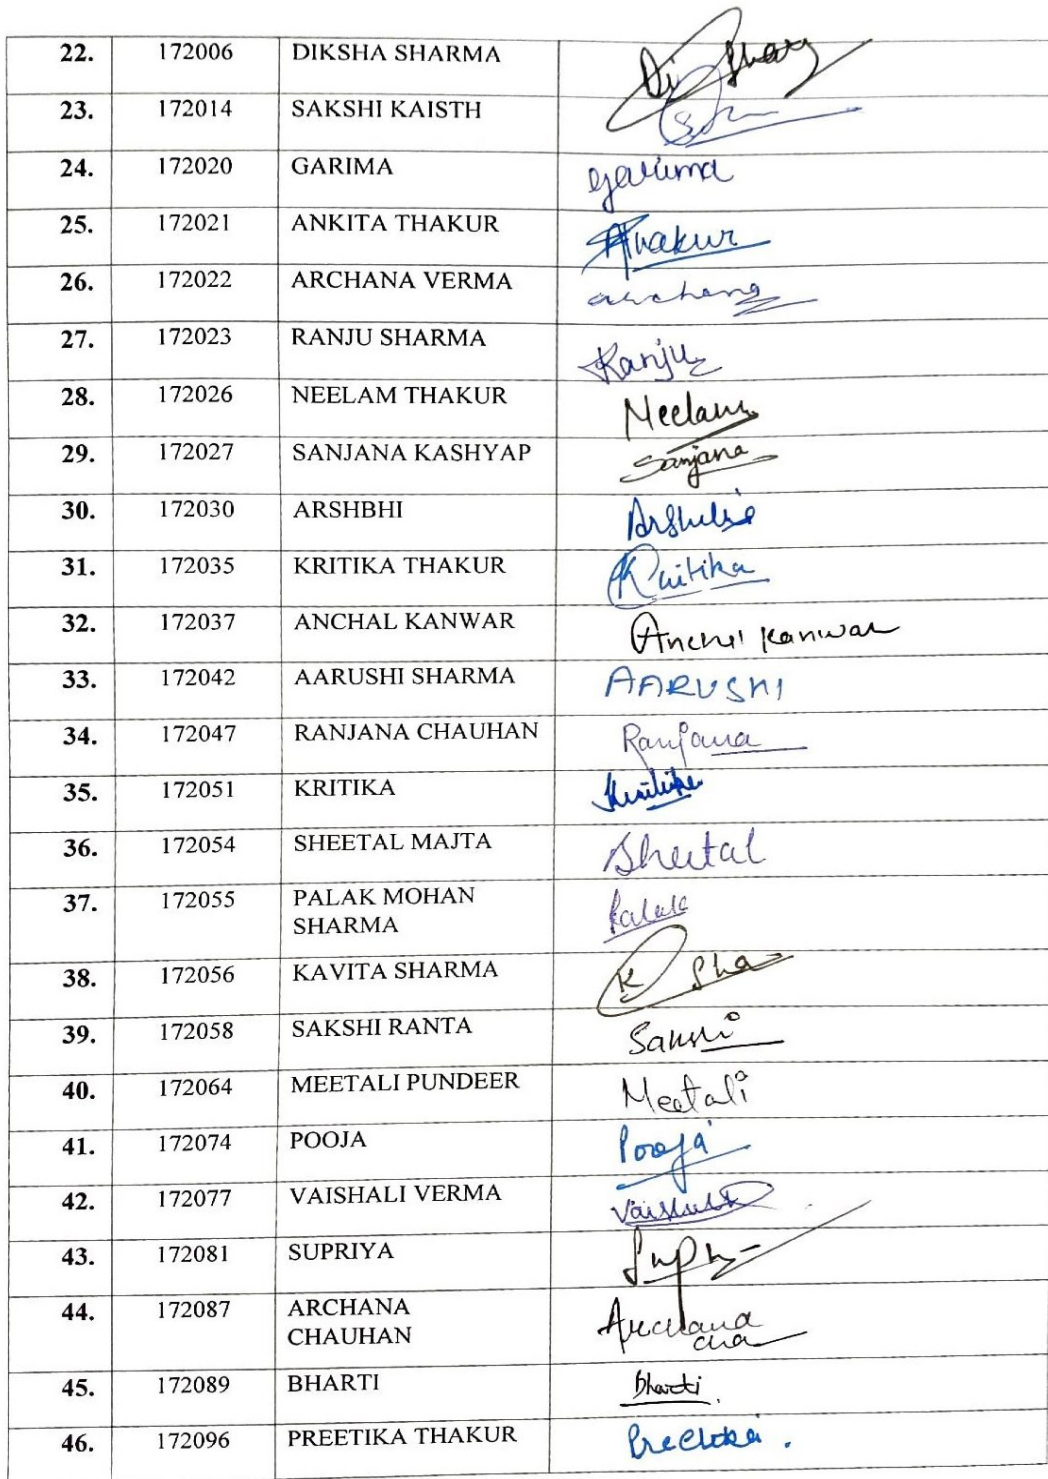 22. 172006 DIKSHA SHARMA Di Shar
23. 172014 SAKSHI KAISTH
24. 172020 GARIMA garima
25. 172021 ANKITA THAKUR AThakur
26. 172022 ARCHANA VERMA archana
27. 172023 RANJU SHARMA Ranju
28. 172026 NEELAM THAKUR Neelam
29. 172027 SANJANA KASHYAP Sanjana
30. 172030 ARSHBHI Arshbhi
31. 172035 KRITIKA THAKUR Kritika
32. 172037 ANCHAL KANWAR Anchal Kanwar
33. 172042 AARUSHI SHARMA AARUSHI
34. 172047 RANJANA CHAUHAN Ranjana
35. 172051 KRITIKA Kritika
36. 172054 SHEETAL MAJTA Sheetal
37. 172055 PALAK MOHAN Palak
SHARMA
38. 172056 KAVITA SHARMA K Sha
39. 172058 SAKSHI RANTA Sakshi
40. 172064 MEETALI PUNDEER Meetali
41. 172074 POOJA Pooja
42. 172077 VAISHALI VERMA Vaishali
43. 172081 SUPRIYA
44. 172087 ARCHANA Archana
CHAUHAN cha
45. 172089 BHARTI Bharti
46. 172096 PREETIKA THAKUR Preetika.